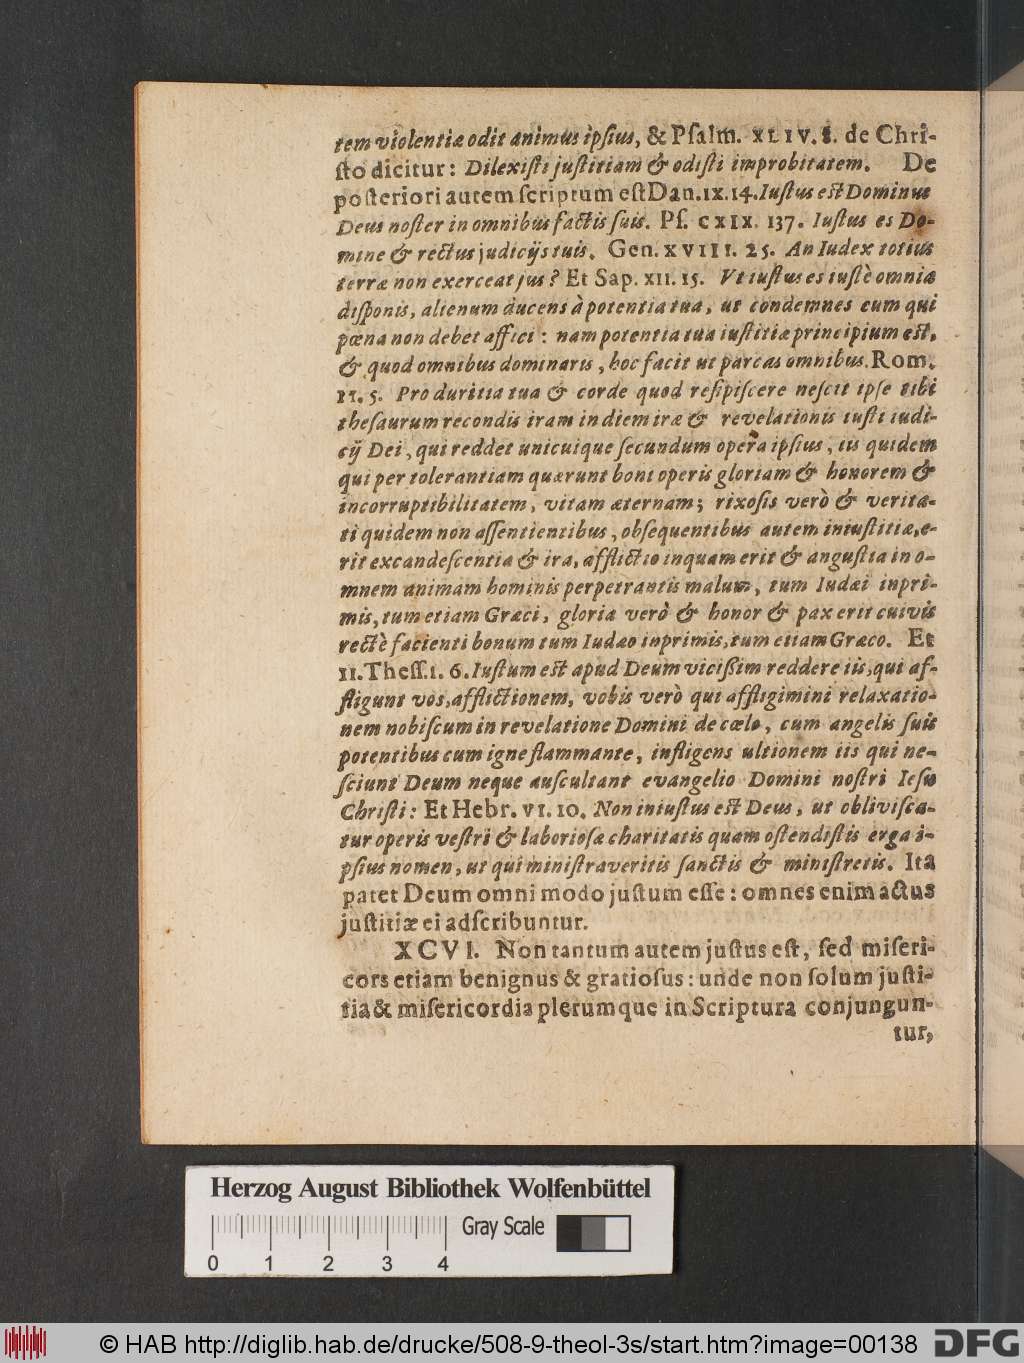 tem violentiæ odit animus ipſius, & Pſalm. XLIV. 8. de Chri-
ſto dicitur: Dilexiſti juſtitiam & odiſti improbitatem. De
poſteriori autem ſcriptum eſt Dan. IX. 14. Iuſtus eſt Dominus
Deus noſter in omnibus factis ſuis. Pſ. CXIX. 137. Iuſtus es Do-
mine & rectus judicijs tuis. Gen. XVIII. 25. An Iudex totius
terræ non exerceat jus? Et Sap. XII. 15. Vt iuſtus es iuſtè omnia
diſponis, alienum ducens à potentia tua, ut condemnes eum qui
pœna non debet affici: nam potentia tua iuſtitiæ principium eſt,
& quod omnibus dominaris, hoc facit ut parcas omnibus. Rom.
II. 5. Pro duritia tua & corde quod reſipiſcere neſcit ipſe tibi
theſaurum recondis iram in diem iræ & revelationis iuſti iudi-
cij Dei, qui reddet unicuique ſecundum opera ipſius, iis quidem
qui per tolerantiam quærunt boni operis gloriam & honorem &
incorruptibilitatem, vitam æternam; rixoſis verò & verita-
ti quidem non aſſentientibus, obſequentibus autem iniuſtitiæ, e-
rit excandeſcentia & ira, afflictio inquam erit & anguſtia in o-
mnem animam hominis perpetrantis malum, tum Iudæi inpri-
mis, tum etiam Græci, gloria verò & honor & pax erit cuivis
rectè facienti bonum tum Iudæo inprimis, tum etiam Græco. Et
II. Theſſ. 1. 6. Iuſtum eſt apud Deum viciſſim reddere iis, qui af-
fligunt vos, afflictionem, vobis verò qui affligimini relaxatio-
nem nobiſcum in revelatione Domini de cœlo, cum angelis ſuis
potentibus cum igne flammante, infligens ultionem iis qui ne-
ſciunt Deum neque auſcultant evangelio Domini noſtri Ieſu
Chriſti: Et Hebr. VI. 10. Non iniuſtus eſt Deus, ut obliviſca-
tur operis veſtri & laborioſæ charitatis quam oſtendiſtis erga i-
pſius nomen, ut qui miniſtraveritis ſanctis & miniſtretis. Ita
patet Deum omni modo juſtum eſſe: omnes enim actus
juſtitiæ ei adſcribuntur.
XCVI. Non tantum autem juſtus eſt, ſed miſeri-
cors etiam benignus & gratioſus: unde non ſolum juſti-
tia & miſericordia plerumque in Scriptura conjungun-
tur,
Herzog August Bibliothek Wolfenbüttel
Gray Scale
0 1 2 3 4
© HAB http://diglib.hab.de/drucke/508-9-theol-3s/start.htm?image=00138
DFG